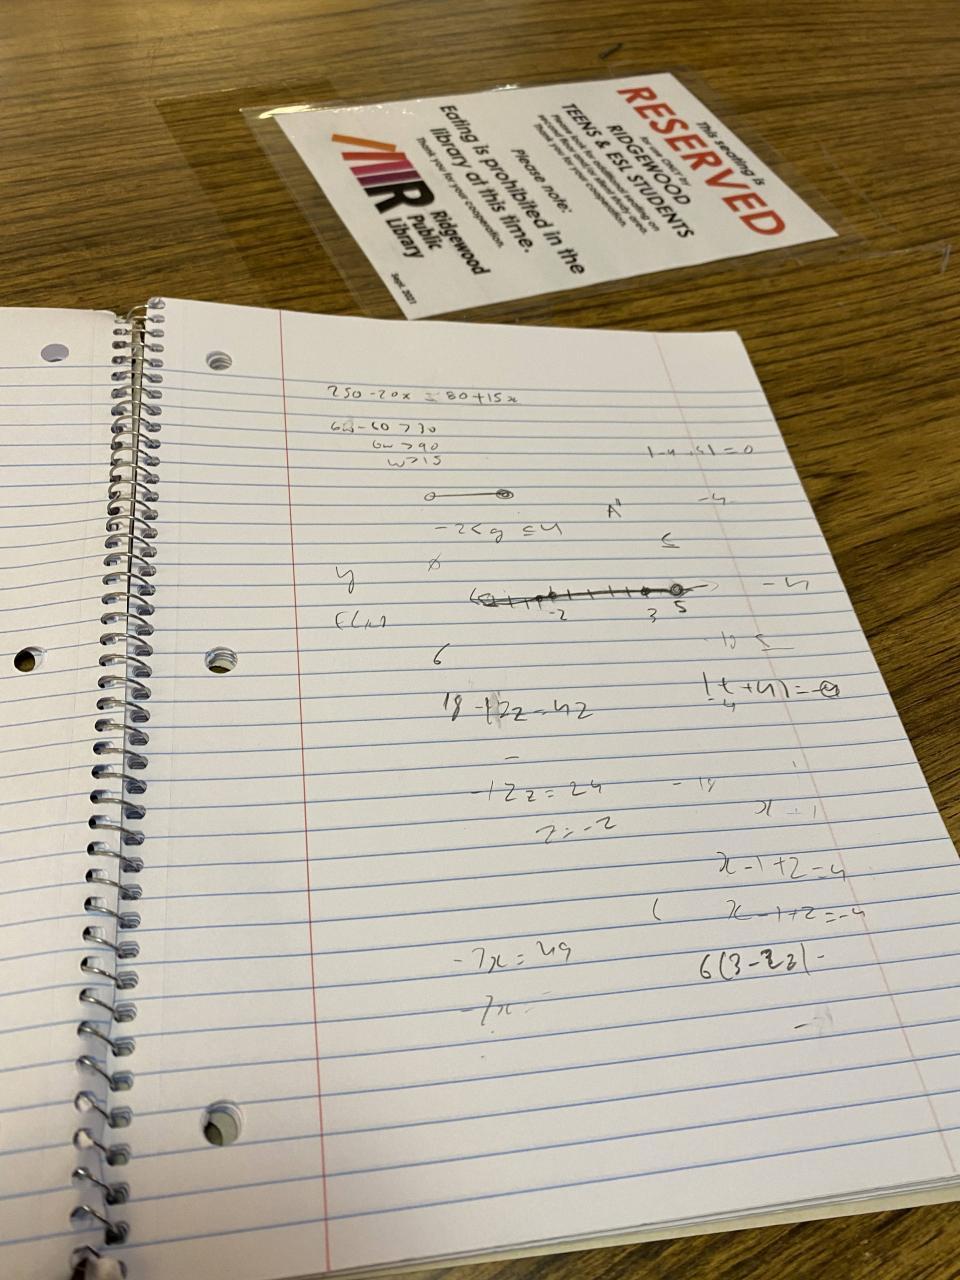 This seating is
RESERVED
for use ONLY by
RIDGEWOOD
TEENS & ESL STUDENTS
Please look for additional seating on
second floor and/or quiet study area.
Thank you for your cooperation.
Please note:
Eating is prohibited in the
library at this time.
Thank you for your cooperation.
Ridgewood
Public
Library
Sept. 2021
250-20x = 80+15x
6w-60 > 30
6w > 90
w > 15
-2 < g ≤ 4
-4
≤
y
ø
-2 3 5
-4
6
18 -12z = 42
-12z = 24
z = -2
x-1+2=4
x-1+2=-4
-7x = 49
6(3-2z)
-7x =